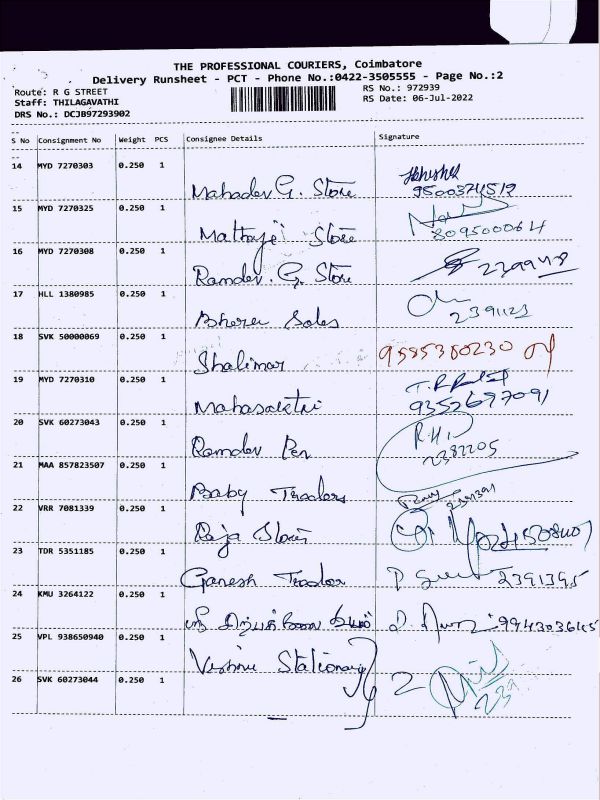 THE PROFESSIONAL COURIERS, Coimbatore
Delivery Runsheet - PCT - Phone No.:0422-3505555 - Page No.:2
Route: R G STREET
RS No.: 972939
Staff: THILAGAVATHI
RS Date: 06-Jul-2022
DRS No.: DCJB97293902
S No Consignment No Weight PCS Consignee Details Signature
14 MYD 7270303 0.250 1 Mahadev G. Store 9500374519
15 MYD 7270325 0.250 1 Store 8095000614
16 MYD 7270308 0.250 1 Ramdev. G. Store
17 HLL 1380985 0.250 1 Sales 2391123
18 SVK 50000069 0.250 1 Shalimar 9585360230
19 MYD 7270310 0.250 1 9352697091
20 SVK 60273043 0.250 1 Ramdev Pen 2382205
21 MAA 857823507 0.250 1 Baby Traders
22 VRR 7081339 0.250 1 Raja Store
23 TDR 5351185 0.250 1 Ganesh Trador 2391395
24 KMU 3264122 0.250 1 994303645
25 VPL 938650940 0.250 1 Vishnu Stationary
26 SVK 60273044 0.250 1 2